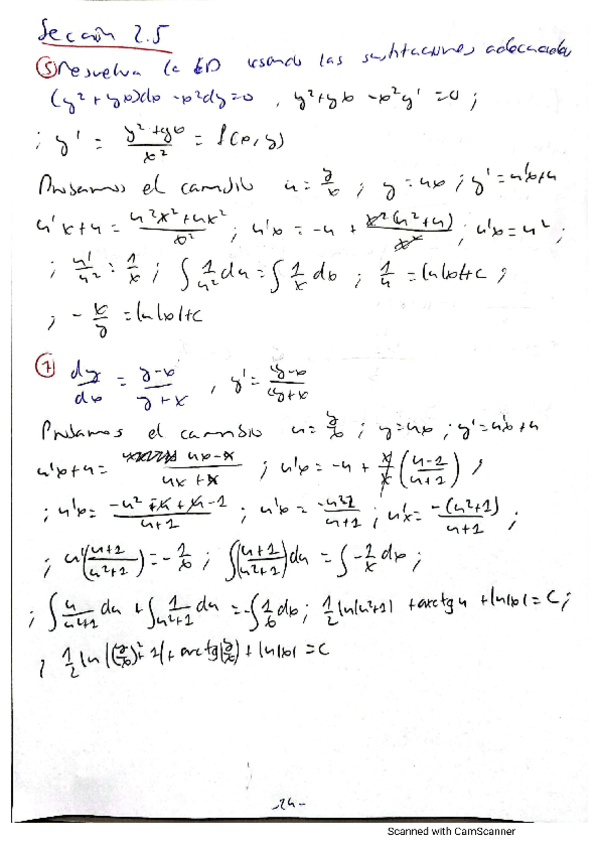 Sección 2.5
⑤ Resuelva la ED usando las sustituciones adecuadas
(y²+yx)dx - x²dy=0 , y²+yx - x²y' =0 ;
; y' = (y²+yx)/x² = f(x,y)
Probamos el cambio u = y/x ; y=ux ; y'=u'x+u
u'x+u = (u²x²+ux²)/x² ; u'x = -u + x²(u²+u)/x² ; u'x=u² ;
; u'/u² = 1/x ; ∫ 1/u² du = ∫ 1/x dx ; 1/u = ln|x|+C ;
; - x/y = ln|x|+C
⑦ dy/dx = (y-x)/(y+x) , y' = (y-x)/(y+x)
Probamos el cambio u= y/x ; y=ux ; y'=u'x+u
u'x+u = (ux-x)/(ux+x) ; u'x = -u + x/x ((u-1)/(u+1)) ;
; u'x = (-u²-u+u-1)/(u+1) ; u'x = (-u²-1)/(u+1) ; u'x = -(u²+1)/(u+1) ;
; u'((u+1)/(u²+1)) = - 1/x ; ∫((u+1)/(u²+1))du = ∫ -1/x dx ;
; ∫ u/(u²+1) du + ∫ 1/(u²+1) du = -∫ 1/x dx ; 1/2 ln(u²+1) + arctg u + ln|x| = C ;
; 1/2 ln|(y/x)²+1| + arctg(y/x) + ln|x| = C
-24-
Scanned with CamScanner